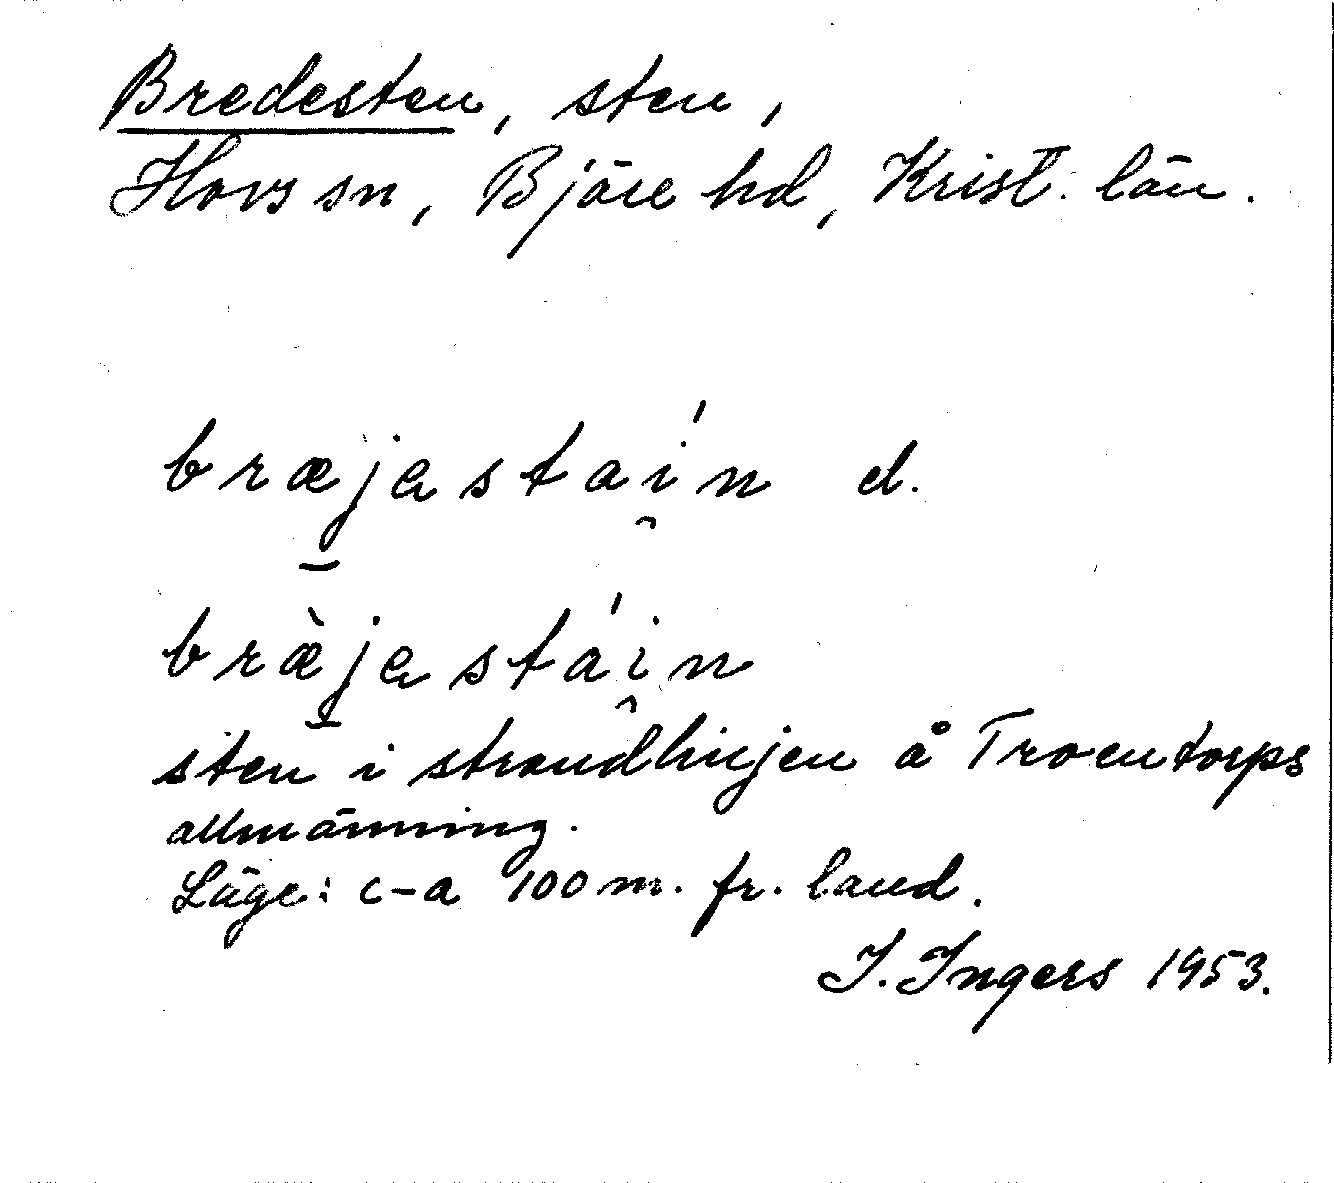 Bredesten, sten,
Hovs sn, Bjäre hd, Krist. län.
bræjastai̯ń d.
bræ̀jastái̯n
sten i strandlinjen å Troentorps
allmänning.
Läge: c-a 100 m. fr. land.
I. Ingers 1953.